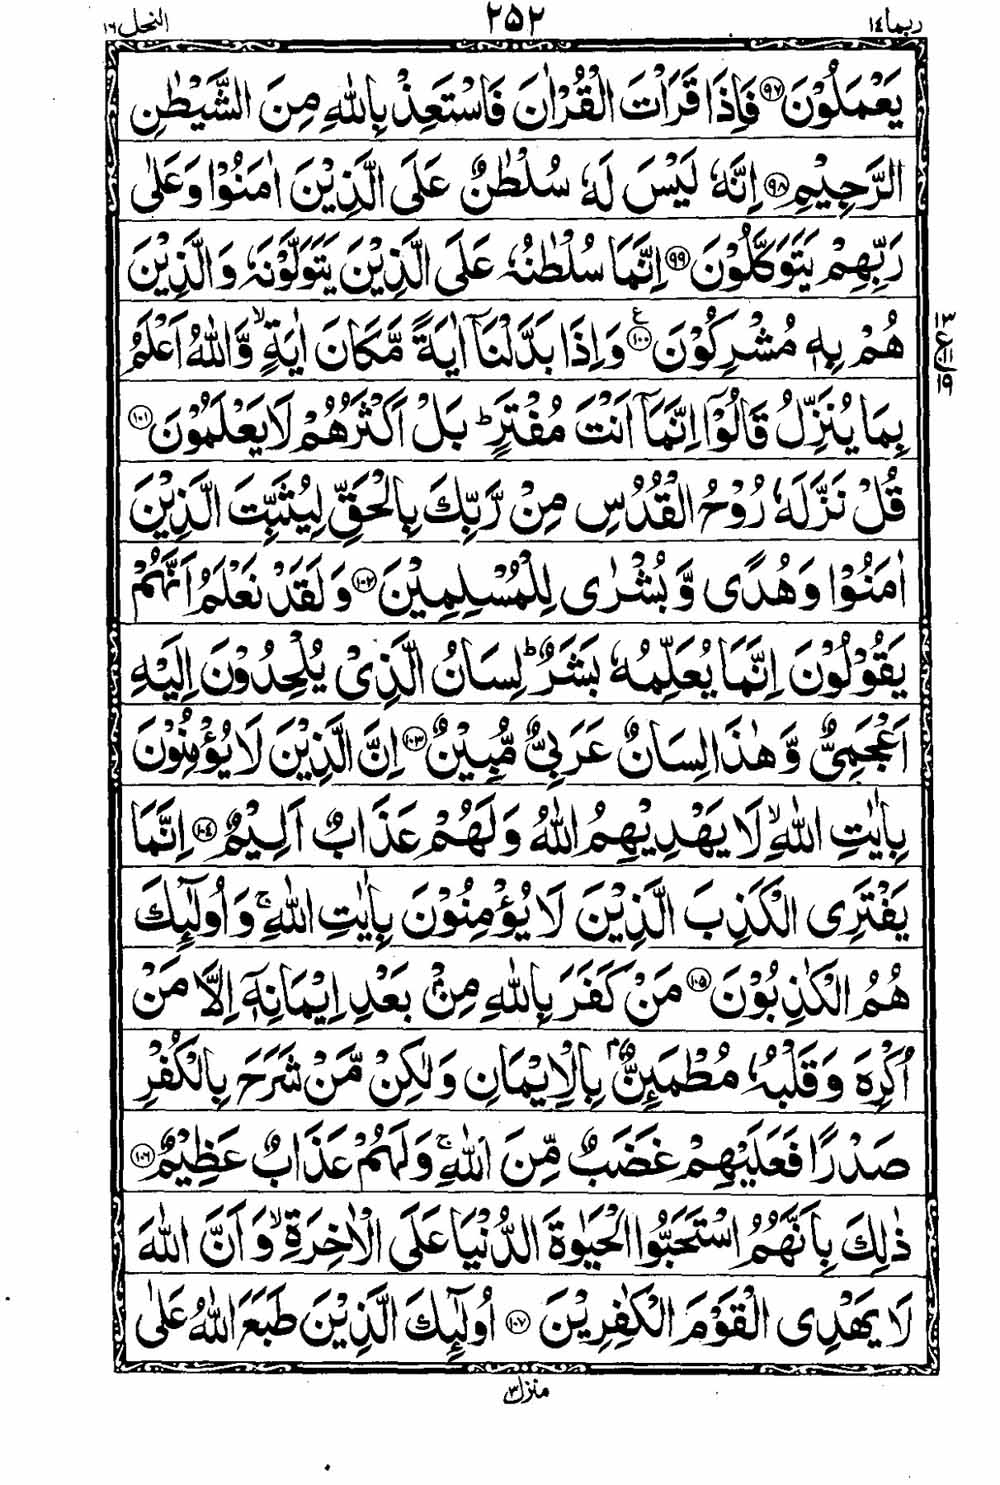 ربما ١٤ ٢٥٢ النحل ١٦
يَعْمَلُوْنَ ﴿٩٧﴾ فَاِذَا قَرَاْتَ الْقُرْاٰنَ فَاسْتَعِذْ بِاللّٰهِ مِنَ الشَّيْطٰنِ
الرَّجِيْمِ ﴿٩٨﴾ اِنَّهٗ لَيْسَ لَهٗ سُلْطٰنٌ عَلَى الَّذِيْنَ اٰمَنُوْا وَعَلٰى
رَبِّهِمْ يَتَوَكَّلُوْنَ ﴿٩٩﴾ اِنَّمَا سُلْطٰنُهٗ عَلَى الَّذِيْنَ يَتَوَلَّوْنَهٗ وَالَّذِيْنَ
هُمْ بِهٖ مُشْرِكُوْنَ ﴿١٠٠﴾ ع وَاِذَا بَدَّلْنَاۤ اٰيَةً مَّكَانَ اٰيَةٍ ۙ وَّاللّٰهُ اَعْلَمُ
١٣ ع ١١ ١٩
بِمَا يُنَزِّلُ قَالُوْۤا اِنَّمَاۤ اَنْتَ مُفْتَرٍ ؕ بَلْ اَكْثَرُهُمْ لَا يَعْلَمُوْنَ ﴿١٠١﴾
قُلْ نَزَّلَهٗ رُوْحُ الْقُدُسِ مِنْ رَّبِّكَ بِالْحَقِّ لِيُثَبِّتَ الَّذِيْنَ
اٰمَنُوْا وَهُدًى وَّبُشْرٰى لِلْمُسْلِمِيْنَ ﴿١٠٢﴾ وَلَقَدْ نَعْلَمُ اَنَّهُمْ
يَقُوْلُوْنَ اِنَّمَا يُعَلِّمُهٗ بَشَرٌ ؕ لِسَانُ الَّذِيْ يُلْحِدُوْنَ اِلَيْهِ
اَعْجَمِيٌّ وَّهٰذَا لِسَانٌ عَرَبِيٌّ مُّبِيْنٌ ﴿١٠٣﴾ اِنَّ الَّذِيْنَ لَا يُؤْمِنُوْنَ
بِاٰيٰتِ اللّٰهِ ۙ لَا يَهْدِيْهِمُ اللّٰهُ وَلَهُمْ عَذَابٌ اَلِيْمٌ ﴿١٠٤﴾ اِنَّمَا
يَفْتَرِى الْكَذِبَ الَّذِيْنَ لَا يُؤْمِنُوْنَ بِاٰيٰتِ اللّٰهِ ۚ وَاُولٰٓئِكَ
هُمُ الْكٰذِبُوْنَ ﴿١٠٥﴾ مَنْ كَفَرَ بِاللّٰهِ مِنْۢ بَعْدِ اِيْمَانِهٖۤ اِلَّا مَنْ
اُكْرِهَ وَقَلْبُهٗ مُطْمَئِنٌّۢ بِالْاِيْمَانِ وَلٰكِنْ مَّنْ شَرَحَ بِالْكُفْرِ
صَدْرًا فَعَلَيْهِمْ غَضَبٌ مِّنَ اللّٰهِ ۚ وَلَهُمْ عَذَابٌ عَظِيْمٌ ﴿١٠٦﴾
ذٰلِكَ بِاَنَّهُمُ اسْتَحَبُّوا الْحَيٰوةَ الدُّنْيَا عَلَى الْاٰخِرَةِ ۙ وَاَنَّ اللّٰهَ
لَا يَهْدِى الْقَوْمَ الْكٰفِرِيْنَ ﴿١٠٧﴾ اُولٰٓئِكَ الَّذِيْنَ طَبَعَ اللّٰهُ عَلٰى
منزل ٣